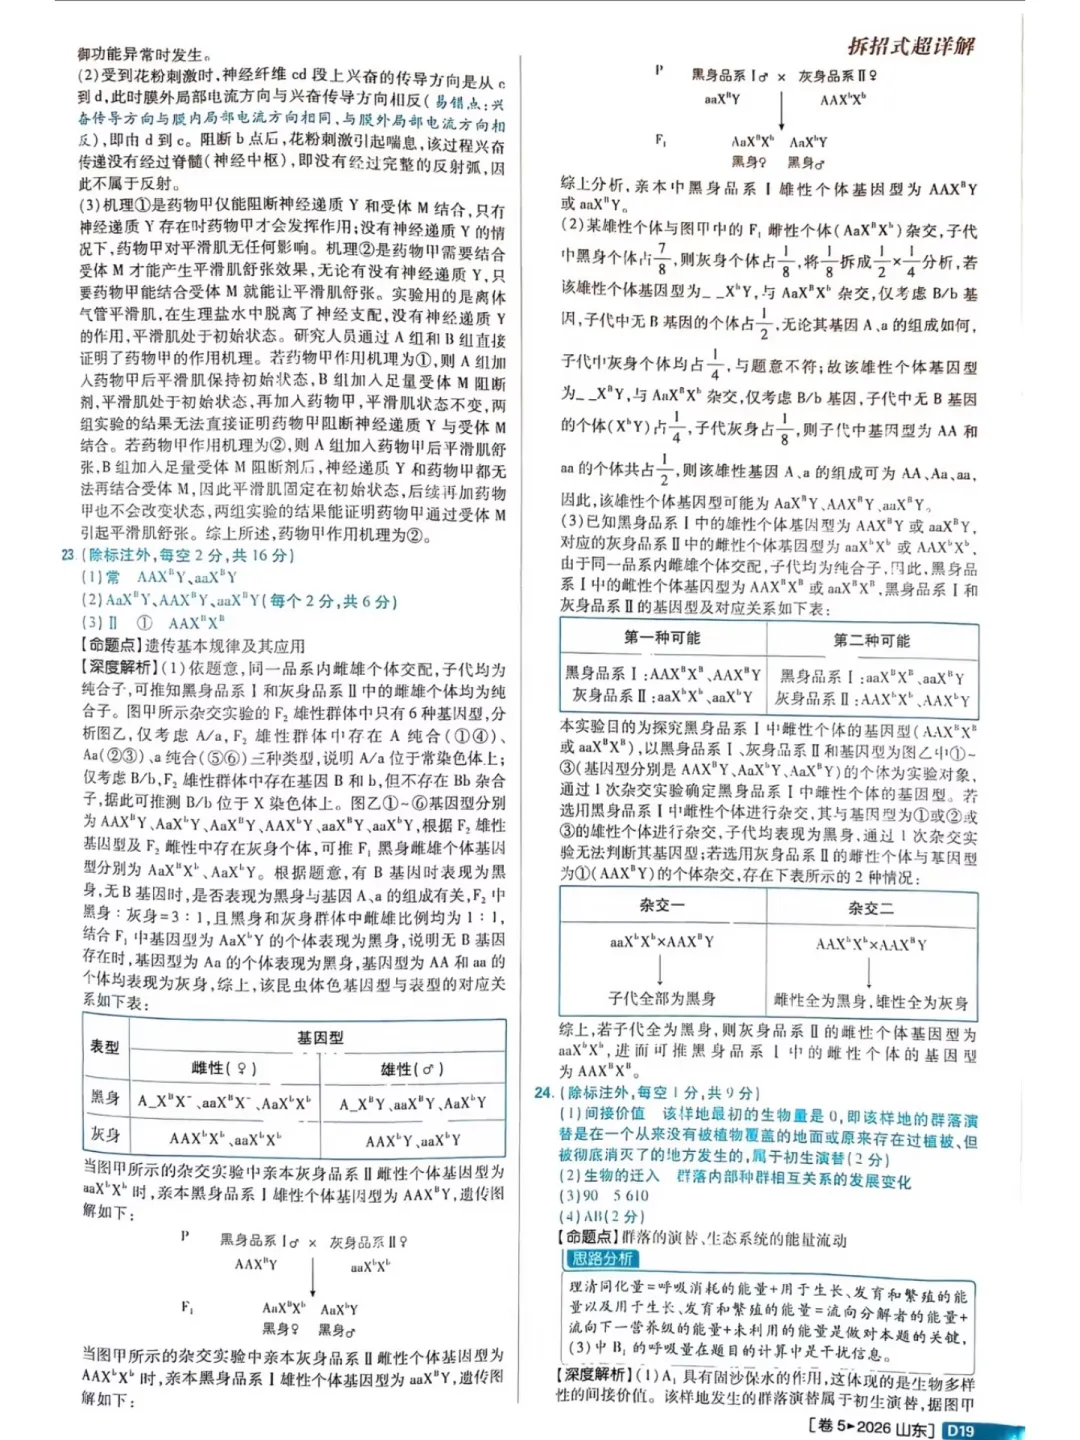 拆招式超详解
御功能异常时发生。
(2)受到花粉刺激时,神经纤维 cd 段上兴奋的传导方向是从 c
到 d,此时膜外局部电流方向与兴奋传导方向相反(易错点:兴
奋传导方向与膜内局部电流方向相同,与膜外局部电流方向相
反),即由 d 到 c。阻断 b 点后,花粉刺激引起喘息,该过程兴奋
传递没有经过脊髓(神经中枢),即没有经过完整的反射弧,因
此不属于反射。
(3)机理①是药物甲仅能阻断神经递质 Y 和受体 M 结合,只有
神经递质 Y 存在时药物甲才会发挥作用;没有神经递质 Y 的情
况下,药物甲对平滑肌无任何影响。机理②是药物甲需要结合
受体 M 才能产生平滑肌舒张效果,无论有没有神经递质 Y,只
要药物甲能结合受体 M 就能让平滑肌舒张。实验用的是离体
气管平滑肌,在生理盐水中脱离了神经支配,没有神经递质 Y
的作用,平滑肌处于初始状态。研究人员通过 A 组和 B 组直接
证明了药物甲的作用机理。若药物甲作用机理为①,则 A 组加
入药物甲后平滑肌保持初始状态,B 组加入足量受体 M 阻断
剂,平滑肌处于初始状态,再加入药物甲,平滑肌状态不变,两
组实验的结果无法直接证明药物甲阻断神经递质 Y 与受体 M
结合。若药物甲作用机理为②,则 A 组加入药物甲后平滑肌舒
张,B 组加入足量受体 M 阻断剂后,神经递质 Y 和药物甲都无
法再结合受体 M,因此平滑肌固定在初始状态,后续再加药物
甲也不会改变状态,两组实验的结果能证明药物甲通过受体 M
引起平滑肌舒张。综上所述,药物甲作用机理为②。
23 (除标注外,每空 2 分,共 16 分)
(1)常 AAXᴮY、aaXᴮY
(2)AaXᴮY、AAXᴮY、aaXᴮY(每个 2 分,共 6 分)
(3)Ⅱ ① AAXᴮXᴮ
【命题点】遗传基本规律及其应用
【深度解析】(1)依题意,同一品系内雌雄个体交配,子代均为
纯合子,可推知黑身品系Ⅰ和灰身品系Ⅱ中的雌雄个体均为纯
合子。图甲所示杂交实验的 F₂ 雄性群体中只有 6 种基因型,分
析图乙,仅考虑 A/a,F₂ 雄性群体中存在 A 纯合(①④)、
Aa(②③)、a 纯合(⑤⑥)三种类型,说明 A/a 位于常染色体上;
仅考虑 B/b,F₂ 雄性群体中存在基因 B 和 b,但不存在 Bb 杂合
子,据此可推测 B/b 位于 X 染色体上。图乙①~⑥基因型分别
为 AAXᴮY、AaXᵇY、AaXᴮY、AAXᵇY、aaXᴮY、aaXᵇY,根据 F₂ 雄性
基因型及 F₂ 雌性中存在灰身个体,可推 F₁ 黑身雌雄个体基因
型分别为 AaXᴮXᵇ、AaXᵇY。根据题意,有 B 基因时表现为黑
身,无 B 基因时,是否表现为黑身与基因 A、a 的组成有关,F₂ 中
黑身∶灰身=3∶1,且黑身和灰身群体中雌雄比例均为 1∶1,
结合 F₁ 中基因型为 AaXᵇY 的个体表现为黑身,说明无 B 基因
存在时,基因型为 Aa 的个体表现为黑身,基因型为 AA 和 aa 的
个体均表现为灰身,综上,该昆虫体色基因型与表型的对应关
系如下表:
表型 基因型
雌性(♀) 雄性(♂)
黑身 A_XᴮX⁻、aaXᴮX⁻、AaXᵇXᵇ A_XᴮY、aaXᴮY、AaXᵇY
灰身 AAXᵇXᵇ、aaXᵇXᵇ AAXᵇY、aaXᵇY
当图甲所示的杂交实验中亲本灰身品系Ⅱ雌性个体基因型为
aaXᵇXᵇ 时,亲本黑身品系Ⅰ雄性个体基因型为 AAXᴮY,遗传图
解如下:
P 黑身品系Ⅰ♂ × 灰身品系Ⅱ♀
AAXᴮY aaXᵇXᵇ
F₁ AaXᴮXᵇ AaXᵇY
黑身♀ 黑身♂
当图甲所示的杂交实验中亲本灰身品系Ⅱ雌性个体基因型为
AAXᵇXᵇ 时,亲本黑身品系Ⅰ雄性个体基因型为 aaXᴮY,遗传图
解如下:
P 黑身品系Ⅰ♂ × 灰身品系Ⅱ♀
aaXᴮY AAXᵇXᵇ
F₁ AaXᴮXᵇ AaXᵇY
黑身♀ 黑身♂
综上分析,亲本中黑身品系Ⅰ雄性个体基因型为 AAXᴮY
或 aaXᴮY。
(2)某雄性个体与图甲中的 F₁ 雌性个体(AaXᴮXᵇ)杂交,子代
中黑身个体占 7/8,则灰身个体占 1/8,将 1/8 拆成 1/2×1/4 分析,若
该雄性个体基因型为_ _XᵇY,与 AaXᴮXᵇ 杂交,仅考虑 B/b 基
因,子代中无 B 基因的个体占 1/2,无论其基因 A、a 的组成如何,
子代中灰身个体均占 1/4,与题意不符;故该雄性个体基因型
为_ _XᴮY,与 AaXᴮXᵇ 杂交,仅考虑 B/b 基因,子代中无 B 基因
的个体(XᵇY)占 1/4,子代灰身占 1/8,则子代中基因型为 AA 和
aa 的个体共占 1/2,则该雄性基因 A、a 的组成可为 AA、Aa、aa,
因此,该雄性个体基因型可能为 AaXᴮY、AAXᴮY、aaXᴮY。
(3)已知黑身品系Ⅰ中的雄性个体基因型为 AAXᴮY 或 aaXᴮY,
对应的灰身品系Ⅱ中的雌性个体基因型为 aaXᵇXᵇ 或 AAXᵇXᵇ,
由于同一品系内雌雄个体交配,子代均为纯合子,因此,黑身品
系Ⅰ中的雌性个体基因型为 AAXᴮXᴮ 或 aaXᴮXᴮ,黑身品系Ⅰ和
灰身品系Ⅱ的基因型及对应关系如下表:
第一种可能 第二种可能
黑身品系Ⅰ:AAXᴮXᴮ、AAXᴮY 黑身品系Ⅰ:aaXᴮXᴮ、aaXᴮY
灰身品系Ⅱ:aaXᵇXᵇ、aaXᵇY 灰身品系Ⅱ:AAXᵇXᵇ、AAXᵇY
本实验目的为探究黑身品系Ⅰ中雌性个体的基因型(AAXᴮXᴮ
或 aaXᴮXᴮ),以黑身品系Ⅰ、灰身品系Ⅱ和基因型为图乙中①~
③(基因型分别是 AAXᴮY、AaXᵇY、AaXᴮY)的个体为实验对象,
通过 1 次杂交实验确定黑身品系Ⅰ中雌性个体的基因型。若
选用黑身品系Ⅰ中雌性个体进行杂交,其与基因型为①或②或
③的雄性个体进行杂交,子代均表现为黑身,通过 1 次杂交实
验无法判断其基因型;若选用灰身品系Ⅱ的雌性个体与基因型
为①(AAXᴮY)的个体杂交,存在下表所示的 2 种情况:
杂交一 杂交二
aaXᵇXᵇ×AAXᴮY AAXᵇXᵇ×AAXᴮY
子代全部为黑身 雌性全为黑身,雄性全为灰身
综上,若子代全为黑身,则灰身品系Ⅱ的雌性个体基因型为
aaXᵇXᵇ,进而可推黑身品系Ⅰ中的雌性个体的基因型
为 AAXᴮXᴮ。
24. (除标注外,每空 1 分,共 9 分)
(1)间接价值 该样地最初的生物量是 0,即该样地的群落演
替是在一个从来没有被植物覆盖的地面或原来存在过植被、但
被彻底消灭了的地方发生的,属于初生演替(2 分)
(2)生物的迁入 群落内部种群相互关系的发展变化
(3)90 5 610
(4)AB(2 分)
【命题点】群落的演替、生态系统的能量流动
思路分析
理清同化量=呼吸消耗的能量+用于生长、发育和繁殖的能
量以及用于生长、发育和繁殖的能量=流向分解者的能量+
流向下一营养级的能量+未利用的能量是做对本题的关键,
(3)中 B₁ 的呼吸量在题目的计算中是干扰信息。
【深度解析】(1)A₁ 具有固沙保水的作用,这体现的是生物多样
性的间接价值。该样地发生的群落演替属于初生演替,据图甲
[卷 5▸2026 山东] D19